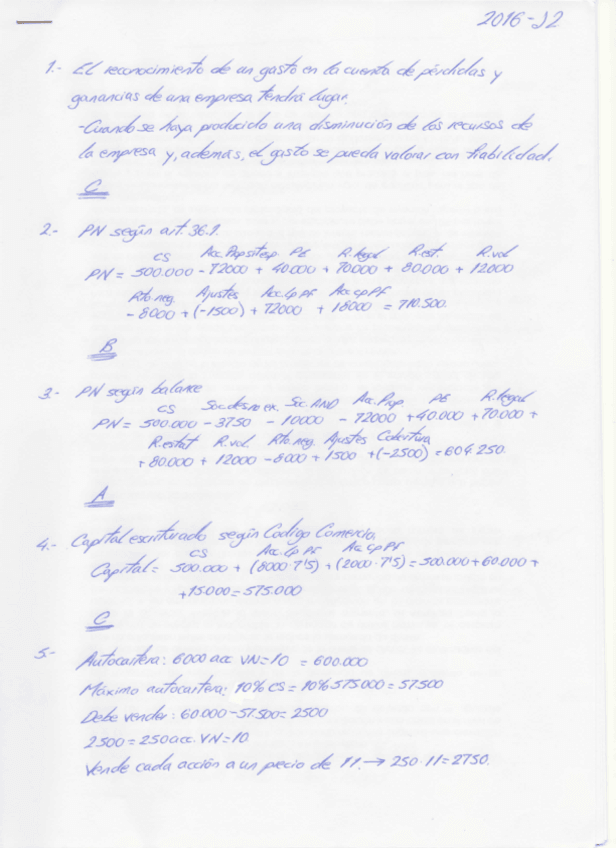 2016-J2
1.- El reconocimiento de un gasto en la cuenta de pérdidas y
ganancias de una empresa tendrá lugar:
-Cuando se haya producido una disminución de los recursos de
la empresa y, además, el gasto se pueda valorar con fiabilidad.
C
2.- PN según art. 36.1.
CS Acc. Prop sit esp. PE R. legal R. est. R. vol
PN = 500.000 - 72000 + 40.000 + 70000 + 80.000 + 12000
Rto. neg. Ajustes Acc Cp PF Acc cp PF
- 8000 + (-1500) + 72000 + 18000 = 710.500.
B
3.- PN según balance
CS Soc. des no ex. Soc. AND Acc. Prop. PE R. legal
PN = 500.000 - 3750 - 10000 - 72000 + 40.000 + 70.000 +
R. estat R. vol. Rto. neg. Ajustes Cobertura
+ 80.000 + 12000 - 8000 + 1500 + (-2500) = 604.250.
A
4.- Capital escriturado según Código Comercio.
CS Acc. Cp PF Acc Cp PF
Capital = 500.000 + (8000·7'5) + (2000·7'5) = 500.000 + 60.000 +
+ 15.000 = 575.000
C
5.- Autocartera: 6000 acc VN=10 = 600.000
Máximo autocartera: 10% CS = 10% 575.000 = 57500
Debe vender: 60.000 - 57.500 = 2500
2500 = 250 acc. VN = 10.
Vende cada acción a un precio de 11. → 250·11 = 2750.